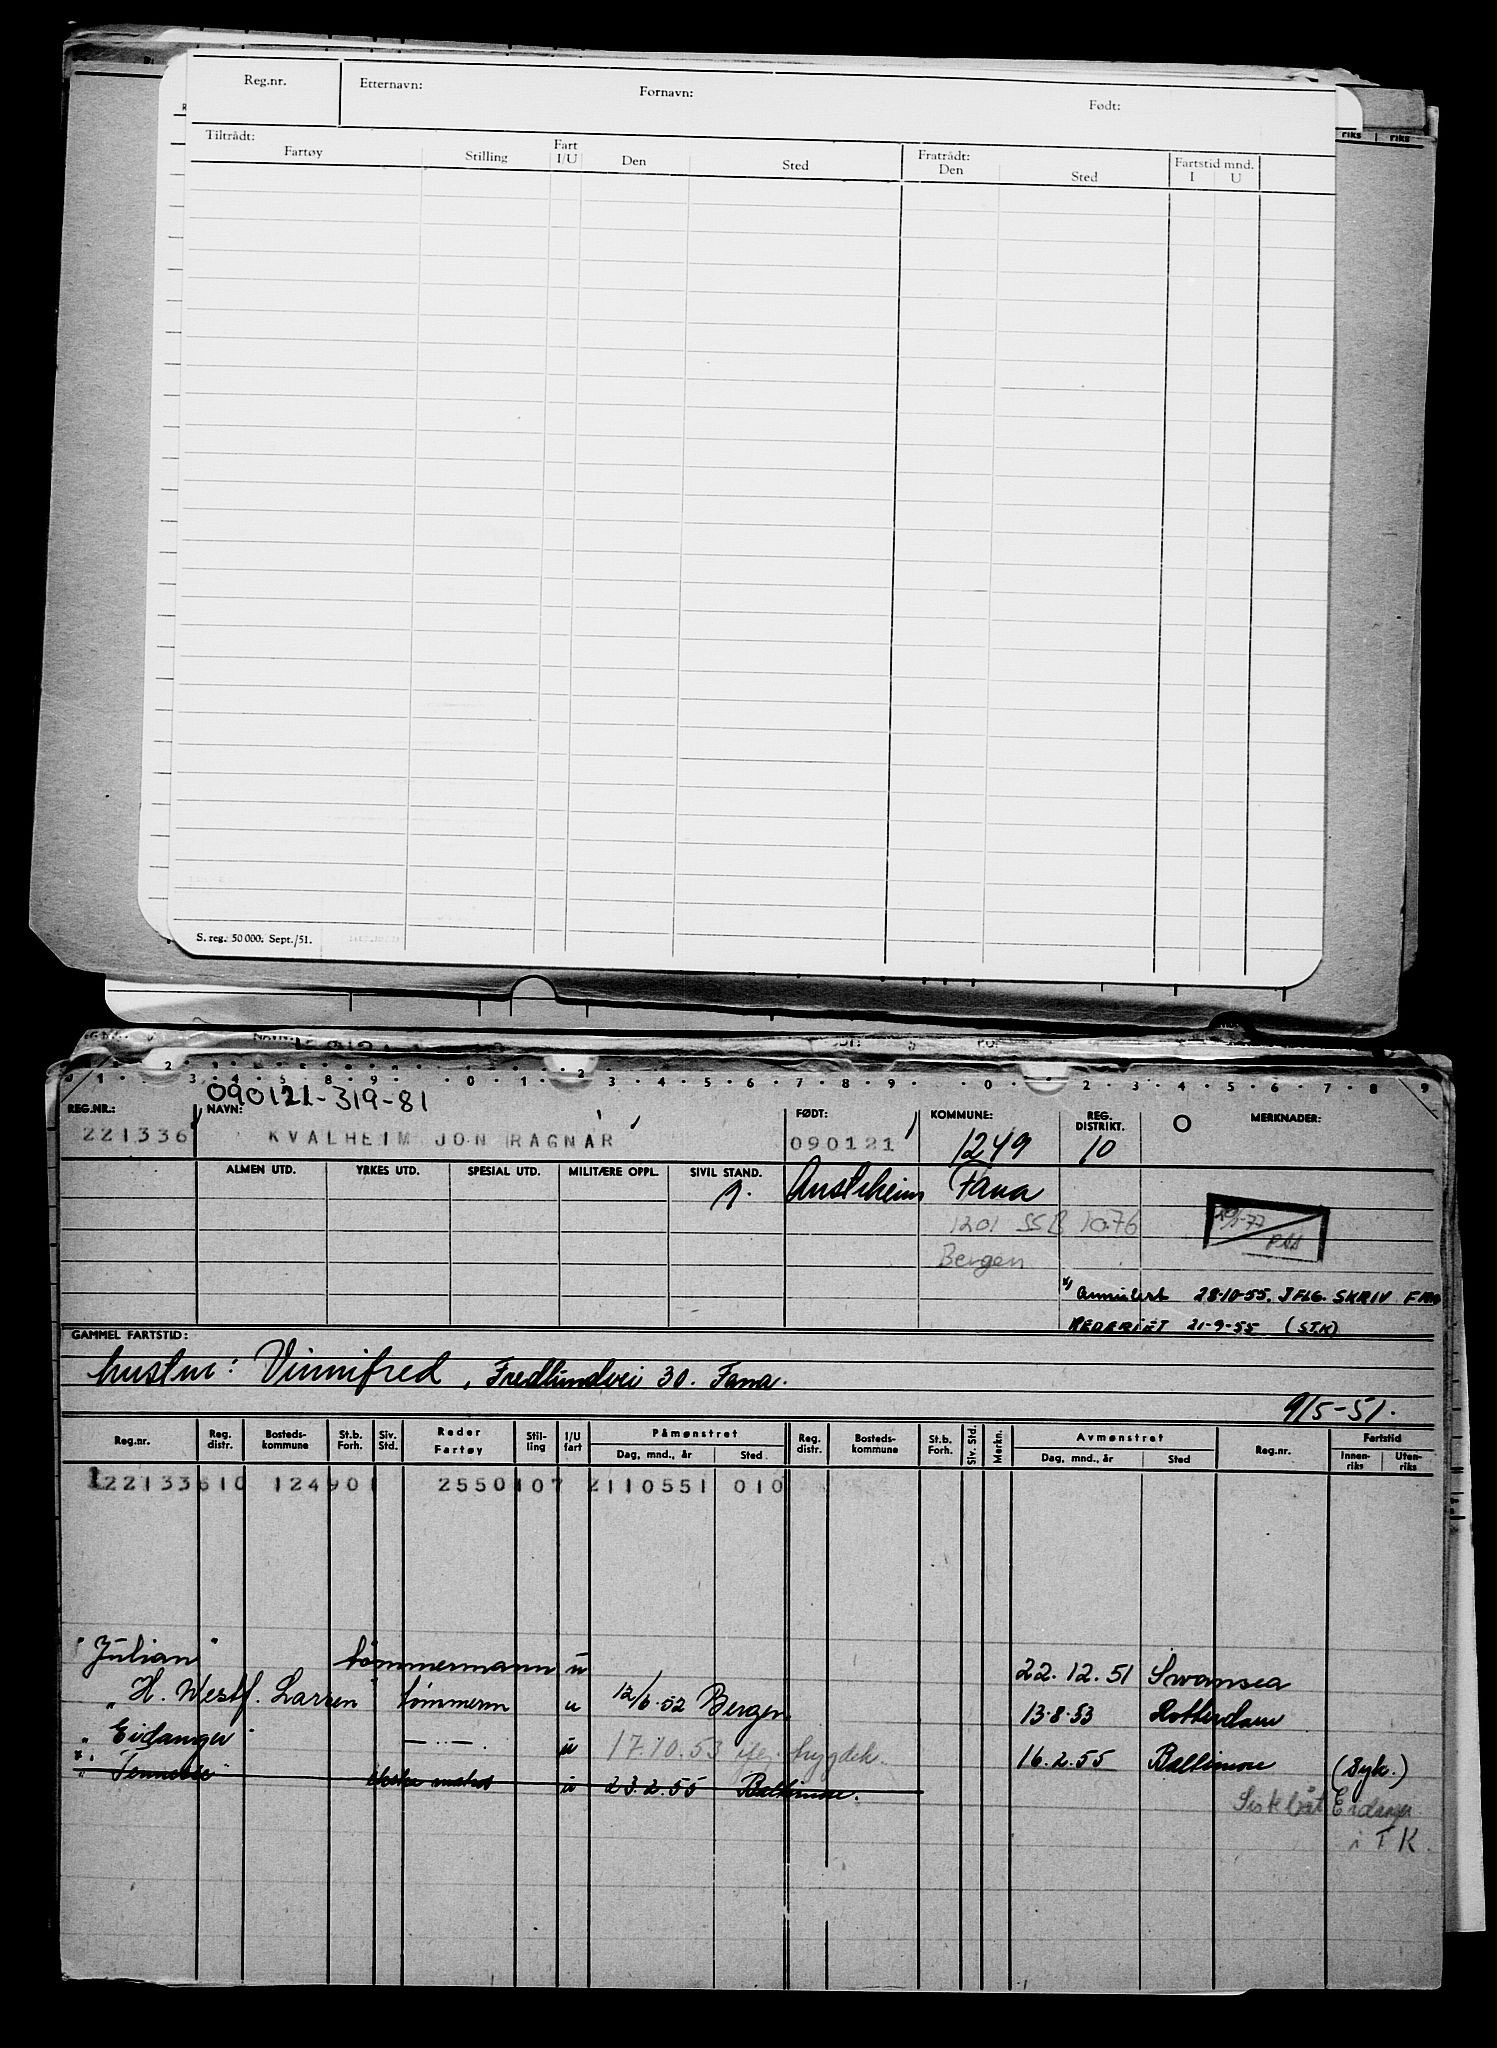 Reg.nr. Etternavn: Fornavn: Født:
Tiltrådt: Fartøy Stilling Fart I/U Den Sted Fratrådt: Den Sted Fartstid mnd. I U
S. reg. 50 000. Sept./51.
090121-319-81
REG.NR.: NAVN: FØDT: KOMMUNE: REG. DISTRIKT. MERKNADER:
221336 KVALHEIM JON RAGNAR 090121 1249 10
ALMEN UTD. YRKES UTD. SPESIAL UTD. MILITÆRE OPPL. SIVIL STAND.
g. Austrheim Fana
1201 SSB 10.76
Bergen
x) Annulert 28-10-55. IFLG. SKRIV FRA
REDERIET 21-9-55 (STK)
GAMMEL FARTSTID:
hustru: Vinnifred, Fredlundvei 30. Fana.
9/5-51.
Reg.nr. Reg. distr. Bosteds-kommune St.b. Forh. Siv. Std. Reder Fartøy Stil-ling I/U fart Påmønstret Dag, mnd., år Sted Reg. distr. Bosteds-kommune St.b. Forh. Siv. Std. Merkn. Avmønstret Dag, mnd., år Sted Reg.nr. Fartstid Innen-riks Uten-riks
122133610 124901 2550107 2110551 010
"Julian" tømmermann u 22.12.51 Swansea
"H. Westf. Larsen" tømmerm u 12/6.52 Bergen 13-8.53 Rotterdam
"Eidanger" —..—. u 17.10.53 16.2.55 Baltimore (Syk.)
x) u 23.2.55 Baltimore.
Eidanger
i TK.